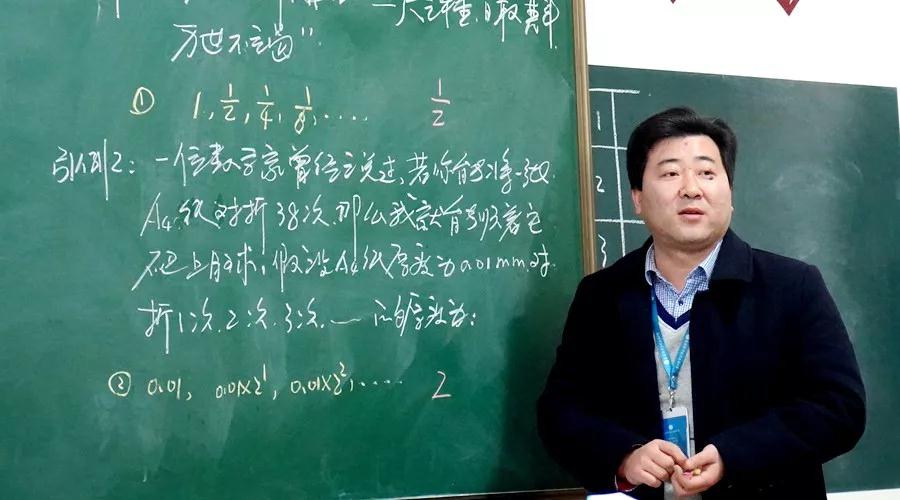 一尺之棰,日取其半
万世不竭"
① 1, 1/2, 1/4, 1/8, .... 1/2
引例2: 一位数学家曾经说过,若你能将一张
A4纸对折38次,那么我就能顺着它
爬上月球,假设A4纸厚度为0.01mm.对
折1次、2次、3次、—的厚度为:
② 0.01, 0.01×2¹, 0.01×2², .... 2
1
2
3